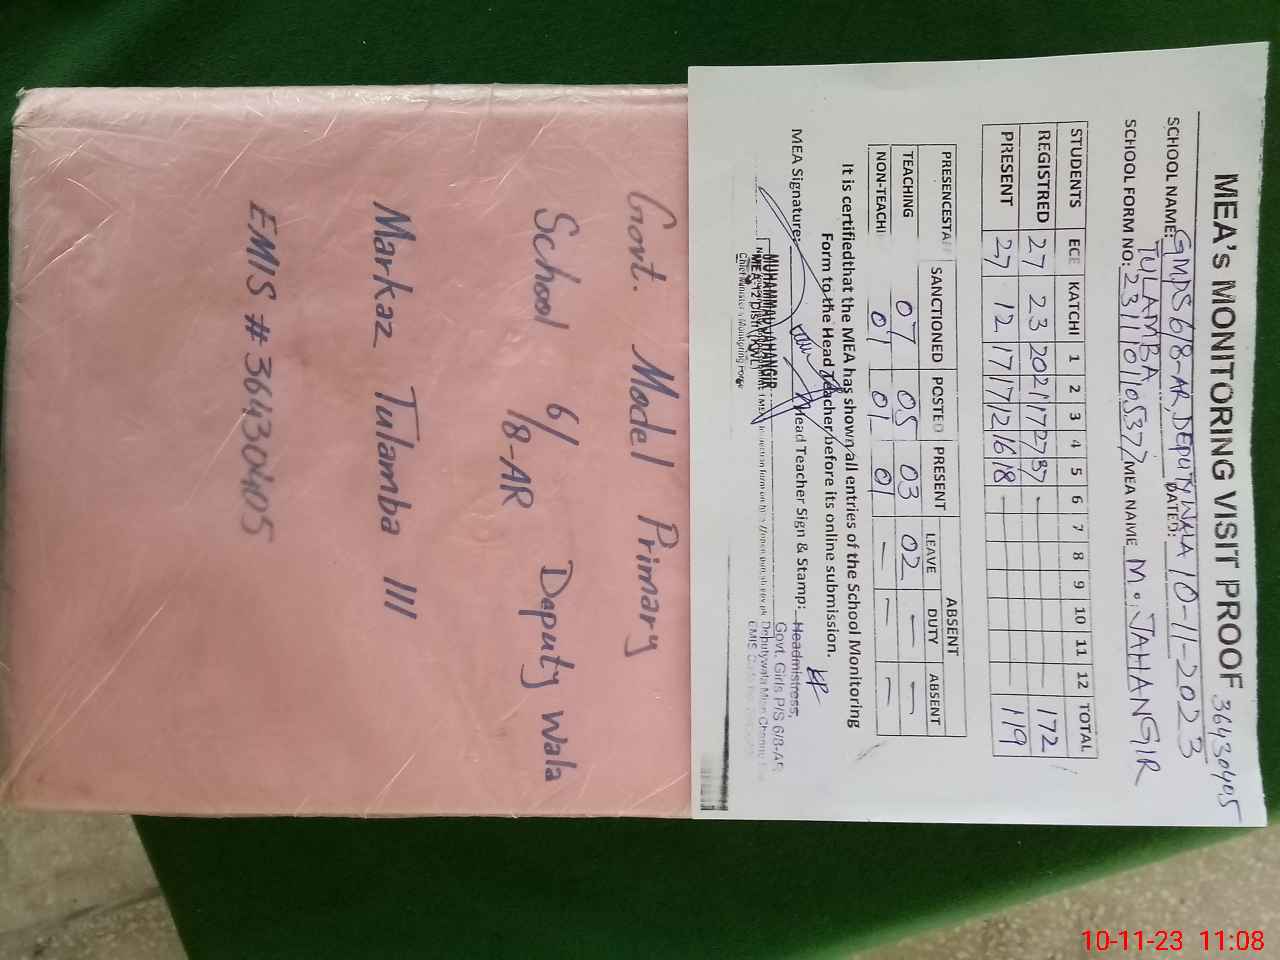 MEA's MONITORING VISIT PROOF 36430405
SCHOOL NAME: GMPS 6/8-AR, DEPUTY WALA DATED: 10-11-2023
TULAMBA
SCHOOL FORM NO: MEA NAME M. JAHANGIR
STUDENTS ECE KATCHI 1 2 3 4 5 6 7 8 9 10 11 12 TOTAL
REGISTRED 27 23 20 21 17 27 37 — — 172
PRESENT 27 12 17 17 12 16 18 — — 119
PRESENCESTA SANCTIONED POSTED PRESENT ABSENT
LEAVE DUTY ABSENT
TEACHING 07 05 03 02 — —
NON-TEACHI 01 01 01 — — —
It is certifiedthat the MEA has shown all entries of the School Monitoring
Form to the Head Teacher before its online submission.
MEA Signature: Head Teacher Sign & Stamp:
MUHAMMAD JAHANGIR
Chief Minister's Monitoring Force
Headmistress,
Govt. Girls P/S 6/8-AR
Deputywala Mian Channu
Govt. Model Primary
School 6/8-AR Deputy Wala
Markaz Tulamba III
EMIS # 36430405
10-11-23 11:08